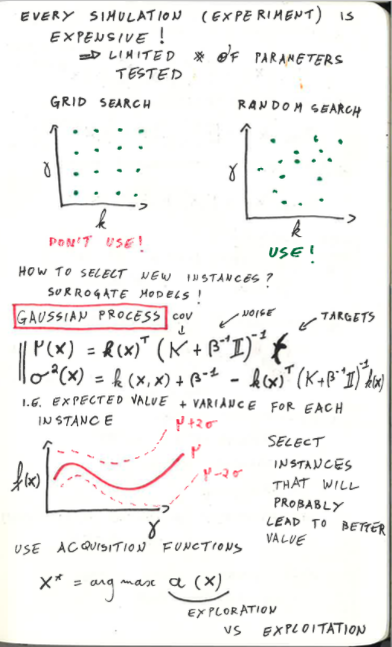 EVERY SIMULATION (EXPERIMENT) IS
EXPENSIVE!
⇒ LIMITED # OF PARAMETERS
TESTED
GRID SEARCH
RANDOM SEARCH
γ
k
γ
k
DON'T USE!
USE!
HOW TO SELECT NEW INSTANCES?
SURROGATE MODELS!
GAUSSIAN PROCESS
COV
NOISE
TARGETS
μ(x) = k(x)ᵀ (K + β⁻¹ 𝕀)⁻¹ t
σ²(x) = k(x,x) + β⁻¹ - k(x)ᵀ (K+β⁻¹𝕀)⁻¹ k(x)
I.E. EXPECTED VALUE + VARIANCE FOR EACH
INSTANCE
μ+2σ
μ
μ-2σ
f(x)
γ
SELECT
INSTANCES
THAT WILL
PROBABLY
LEAD TO BETTER
VALUE
USE ACQUISITION FUNCTIONS
x* = arg max a(x)
EXPLORATION
VS EXPLOITATION